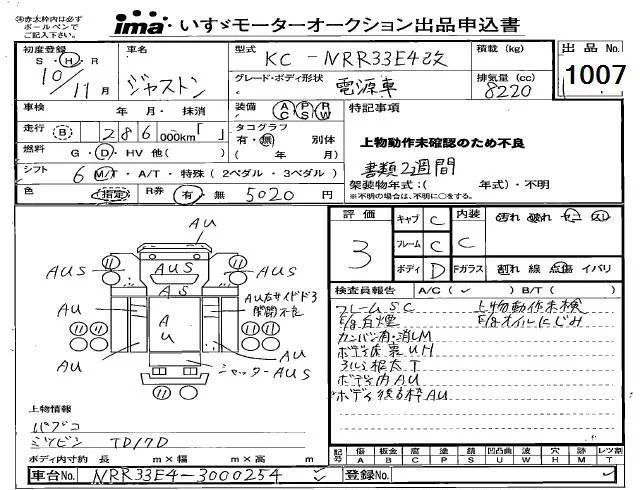 ④赤太枠内は必ず
ボールペンで
ご記入下さい。
ima いすゞモーターオークション出品申込書
初度登録 車名 型式 KC-NRR33E4改 積載(kg) 出品No.
S・H・R
10/11月 ジャストン グレード・ボディ形状 電源車 排気量(cc) 8220 1007
車検 年 月・抹消 装備 AC PS RW 特記事項
走行 B 286 000km「 」 タコグラフ 有・無 別体 上物動作未確認のため不良
燃料 G・D・HV 他( ) ( 年 月) 書類2週間
シフト 6 M/T・A/T・特殊(2ペダル・3ペダル) 架装物年式:( 年式)・不明
※不明の場合は、不明に○をする。
色 (指定) R券 有・無 5020 円
評価 3 キャブ C 内装 C 汚れ 破れ ヤニ スレ
フレーム C
ボディ D Fガラス 割れ 線 点傷 イバリ
検査員報告 A/C( ✓ ) B/T( )
AU
AUS AUS AUS
AS
AU AU AU右サイドドア
開閉不良
AU AU
シャッターAUS
フレームSC 上物動作未検
E/g白煙 E/gオイルにじみ
カンバン有・消しM
ボディ床裏UH
根太T
ボディ内AU
ボディ後方枠AU
上物情報
パブコ
ミツビシ TD17D
ボディ内寸 長 m×幅 m×高 m
記号 傷 板金 腐 塗 錆 凹 凸凹曲 波 穴 跡 レツ割
A B C P S U W H M T
車台No. NRR33E4-3000254 登録No.